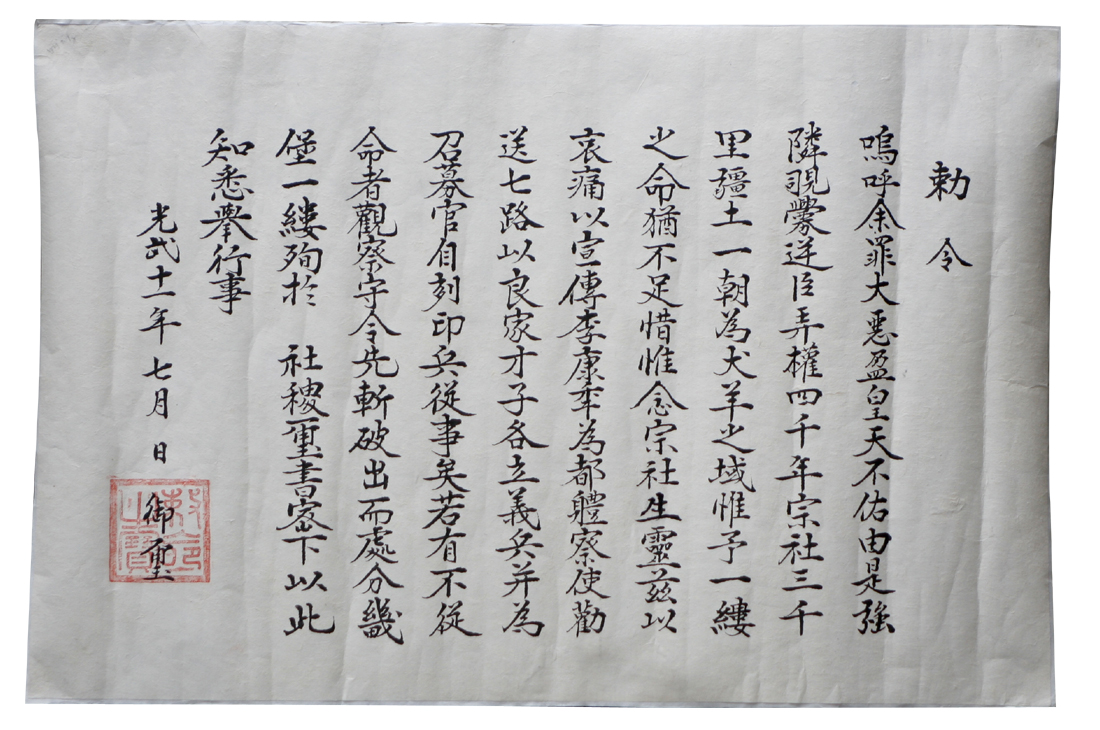 勅令
嗚呼余罪大惡盈皇天不佑由是強
隣覬釁逆臣弄權四千年宗社三千
里疆土一朝為犬羊之域惟予一縷
之命猶不足惜惟念宗社生靈茲以
哀痛以宣傳李康秊為都體察使勸
送七路以良家才子各立義兵并為
召募官自刻印兵從事矣若有不從
命者觀察守令先斬破出而處分畿
堡一縷殉於 社稷璽書密下以此
知悉擧行事
光武十一年七月 日
御璽
勅命之寶